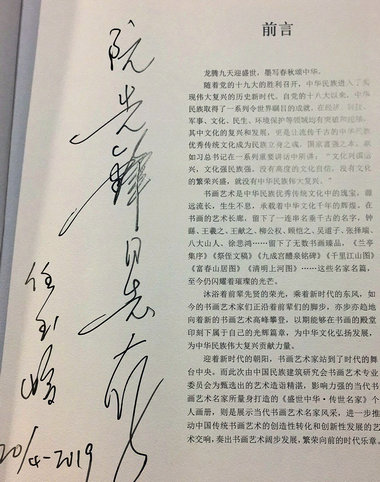 阮先锋同志存
任玉岭
20/4-2019
前言
龙腾九天迎盛世，墨写春秋颂中华。
随着党的十九大的胜利召开，中华民族进入了实
现伟大复兴的历史新时代。自党的十八大以来，中华
民族取得了一系列令世界瞩目的成就，在经济、科技、
军事、文化、民生、环境保护等领域均有突破和建树。
其中文化的复兴和发展，更是让流传千古的中华民族
优秀传统文化成为民族立身之魂，国家富强之本。
如习总书记在一系列重要讲话中所讲：“文化兴国运
兴，文化强民族强。没有高度的文化自信，没有文化
的繁荣兴盛，就没有中华民族伟大复兴。”
书画艺术是中华民族优秀传统文化中的瑰宝，源
远流长，生生不息，承载着中华文化千年的辉煌。在
书画的艺术长廊，留下了一连串名垂千古的名字，钟
繇、王羲之、王献之、柳公权、顾恺之、吴道子、张择端、
八大山人、徐悲鸿……留下了无数书画臻品，《兰亭
集序》《祭侄文稿》《九成宫醴泉铭碑》《千里江山图》
《富春山居图》《清明上河图》……这些名家名篇，
至今仍闪耀着璀璨的光芒。
沐浴着前辈先贤的荣光，乘着新时代的东风，如
今的书画艺术家们正沿着前辈们的脚步，亦步亦趋地
向着新的书画艺术高峰攀登，以期能够在书画的殿堂
印刻下属于自己的光辉篇章，为中华文化弘扬发展，
为中华民族伟大复兴贡献力量。
迎着新时代的朝阳，书画艺术家站到了时代的舞
台中央。而此次由中国民族建筑研究会书画艺术专业
委员会为甄选出的艺术造诣精湛，影响力强的当代书
画艺术名家所量身打造的《盛世中华·传世名家》个
人画册，则是展示当代书画艺术名家风采，进一步推
动中国传统书画艺术的创造性转化和创新性发展的艺
术交响，奏出书画艺术阔步发展，繁荣向前的时代乐章。